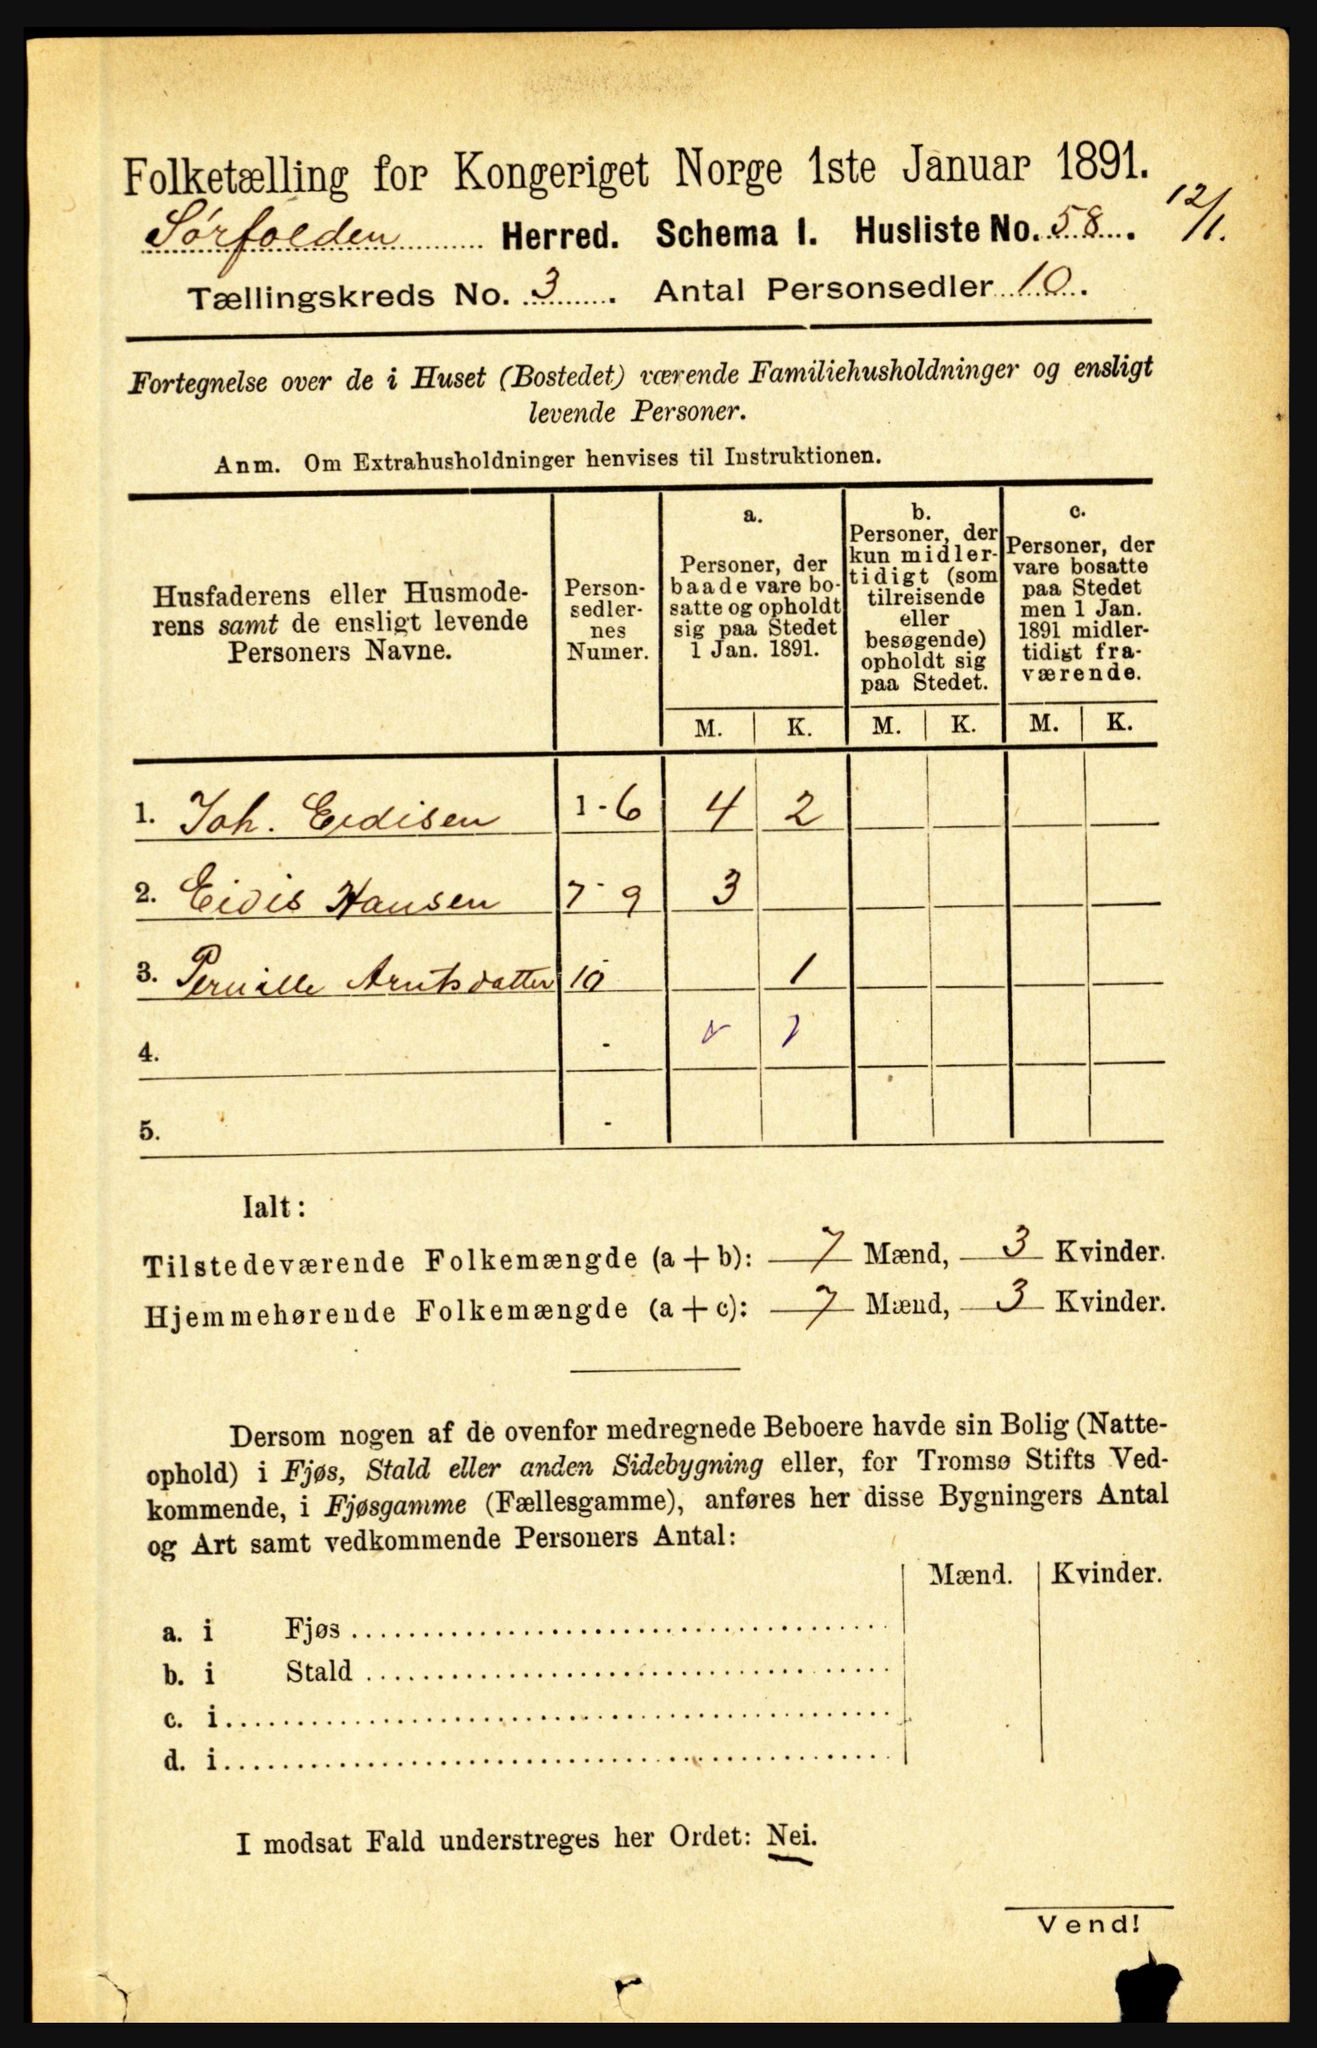 Folketælling for Kongeriget Norge 1ste Januar 1891.
12/1.
Sørfolden Herred. Schema I. Husliste No. 58.
Tællingskreds No. 3. Antal Personsedler 10.
Fortegnelse over de i Huset (Bostedet) værende Familiehusholdninger og ensligt
levende Personer.
Anm. Om Extrahusholdninger henvises til Instruktionen.
Husfaderens eller Husmode-
rens samt de ensligt levende
Personers Navne.
Person-
sedler-
nes
Numer.
a.
Personer, der
baade vare bo-
satte og opholdt
sig paa Stedet
1 Jan. 1891.
b.
Personer, der
kun midler-
tidigt (som
tilreisende
eller
besøgende)
opholdt sig
paa Stedet.
c.
Personer, der
vare bosatte
paa Stedet
men 1 Jan.
1891 midler-
tidigt fra-
værende.
M. K. M. K. M. K.
1. Joh. Eedisen 1-6 4 2
2. Eidis Hansen 7-9 3
3. Pernille Arntsdatter 10 1
4. -
5. -
Ialt:
Tilstedeværende Folkemængde (a + b): 7 Mænd, 3 Kvinder.
Hjemmehørende Folkemængde (a + c): 7 Mænd, 3 Kvinder.
Dersom nogen af de ovenfor medregnede Beboere havde sin Bolig (Natte-
ophold) i Fjøs, Stald eller anden Sidebygning eller, for Tromsø Stifts Ved-
kommende, i Fjøsgamme (Fællesgamme), anføres her disse Bygningers Antal
og Art samt vedkommende Personers Antal:
Mænd. Kvinder.
a. i Fjøs
b. i Stald
c. i
d. i
I modsat Fald understreges her Ordet: Nei.
Vend!